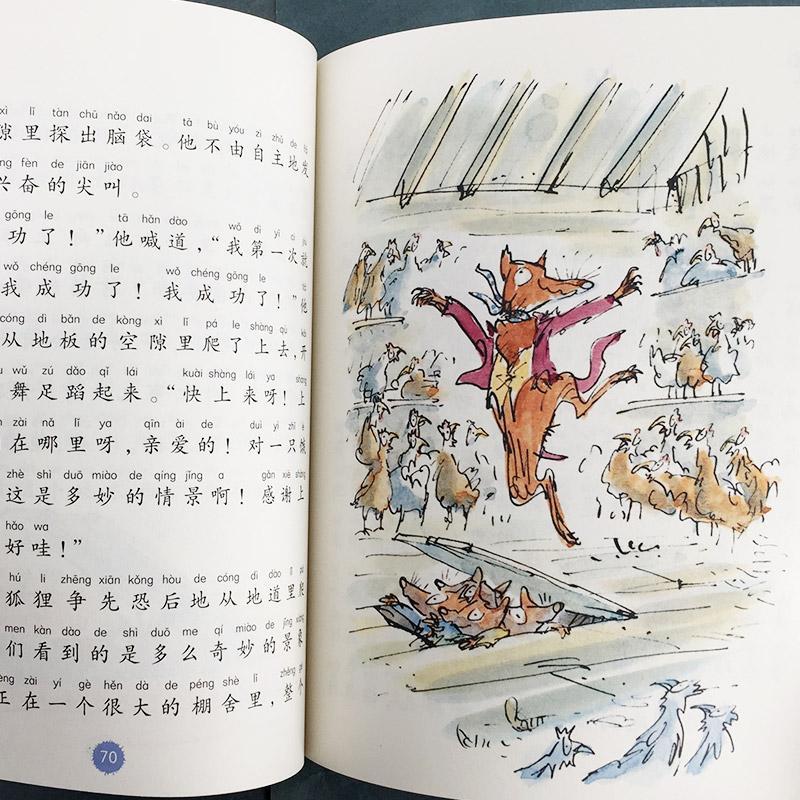 xì lǐ tàn chū nǎo dai tā bù yóu zì zhǔ de
隙里探出脑袋。他不由自主地发
fèn de jiān jiào
兴奋的尖叫。
gōng le tā hǎn dào wǒ dì yī cì jiù
功了！”他喊道，“我第一次就
wǒ chéng gōng le wǒ chéng gōng le
我成功了！我成功了！”他
cóng dì bǎn de kòng xì lǐ pá le shàng qù
从地板的空隙里爬了上去，开
wǔ zú dǎo qǐ lái kuài shàng lái ya shàng
舞足蹈起来。“快上来呀！上
zài nǎ lǐ ya qīn ài de duì yì zhī
在哪里呀，亲爱的！对一只饿
zhè shì duō miào de qíng jǐng a gǎn xiè shàng
这是多妙的情景啊！感谢上
hǎo wa
好哇！”
hú li zhēng xiān kǒng hòu de cóng dì dào lǐ pá
狐狸争先恐后地从地道里爬
men kàn dào de shì duō me qí miào de jǐng xiàng
们看到的是多么奇妙的景象
zài yí gè hěn dà de péng shè lǐ zhěng gè
正在一个很大的棚舍里，整个
70